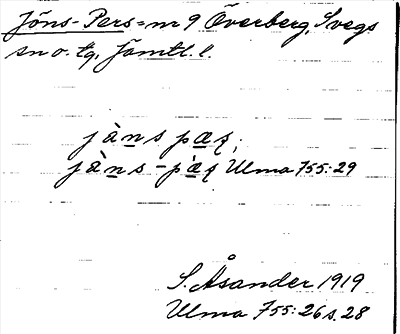 Jöns-Pers = nr 9 Överberg, Svegs
sn o. tg, Jämtl. l.
jàns pæʂ;
jàns-pæ̀ʂ Ulma 755:29
S. Åsander 1919
Ulma 755:26 s. 28